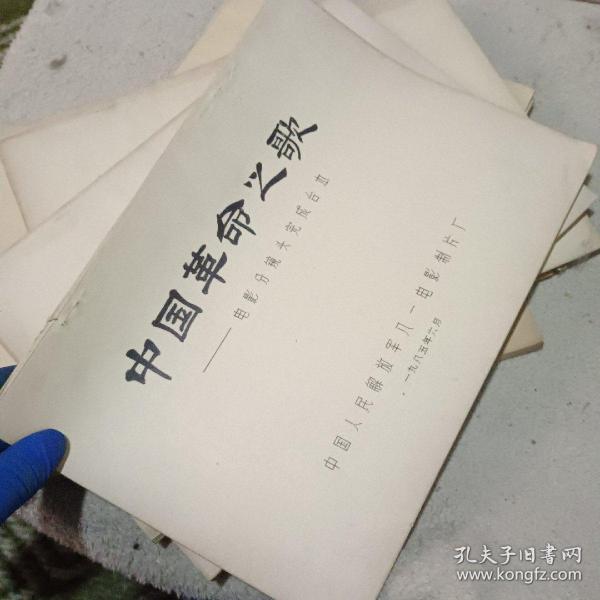 中国革命之歌
——电影分镜头完成台本
中国人民解放军八一电影制片厂
·一九八五年六月
孔夫子旧书网
www.kongfz.com